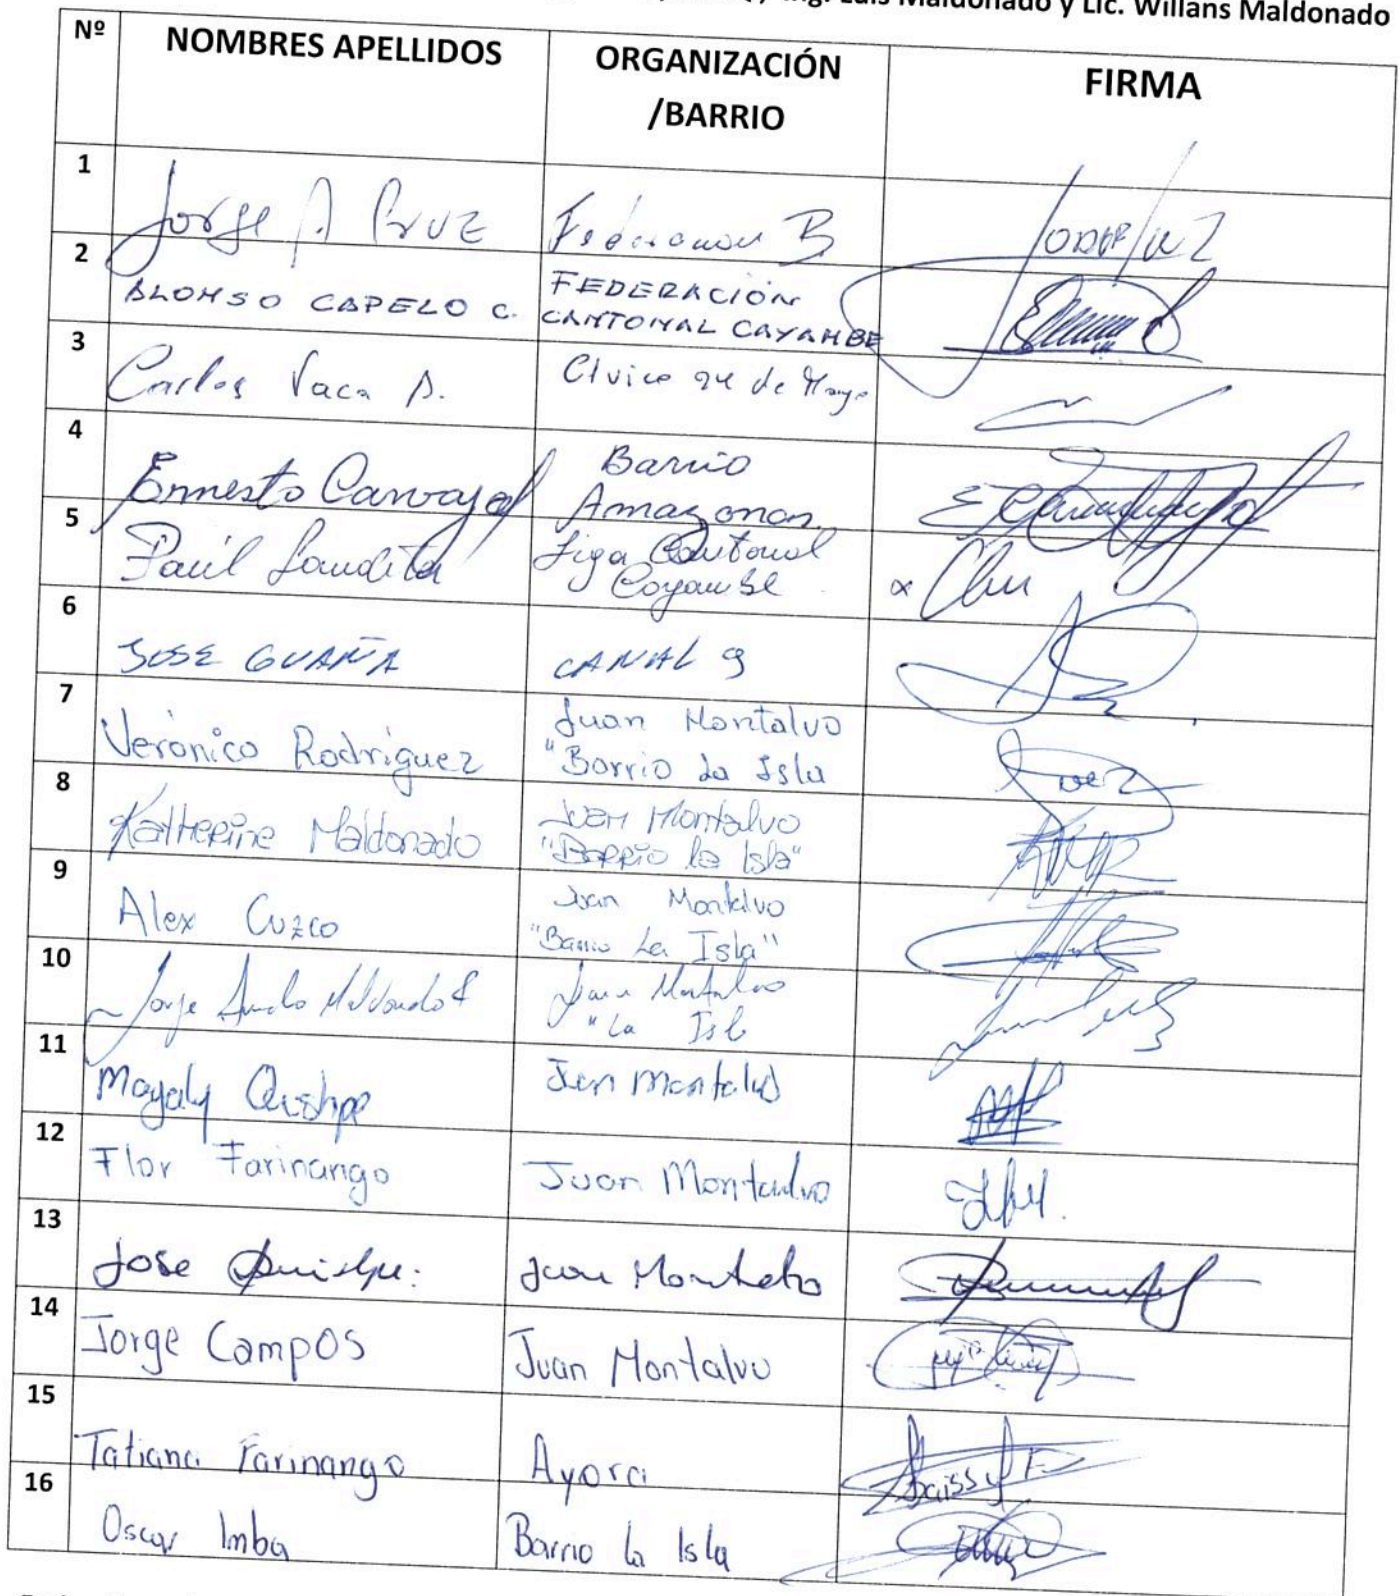 Luis Maldonado y Lic. Willans Maldonado
Nº NOMBRES APELLIDOS ORGANIZACIÓN /BARRIO FIRMA
1 Jorge A Cruz Federacion B
2 ALONSO CAPELO C. FEDERACIÓN CANTONAL CAYAMBE
3 Carlos Vaca A. Civico 24 de Mayo
4 Ernesto Carvajal Barrio Amazonas
5 Paúl Landeta Liga Cantonal Cayambe
6 JOSE GUAÑA CANAL 9
7 Verónica Rodriguez Juan Montalvo "Barrio La Isla
8 Katherine Maldonado Juan Montalvo "Barrio la Isla"
9 Alex Cuzco Juan Montalvo "Barrio La Isla"
10 Jorge Maldonado Juan Montalvo "La Isl
11 Magaly Quishpe Juan Montalvo
12 Flor Farinango Juan Montalvo
13 Jose Quishpe: Juan Montalvo
14 Jorge Campos Juan Montalvo
15 Tatiana Farinango Ayora
16 Oscar Imba Barrio la Isla